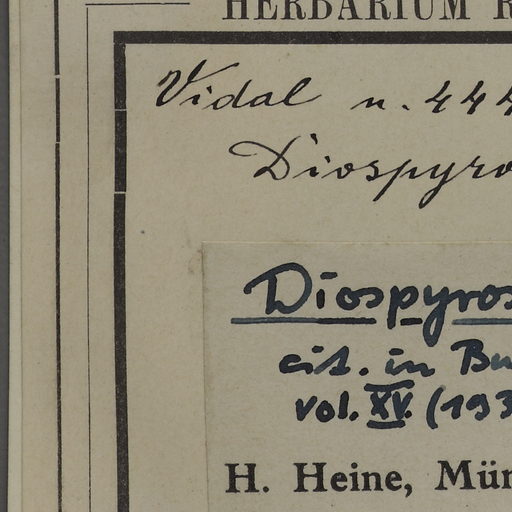 HERBARIUM
Vidal n. 444
Diospyros
Diospyros
cit. in Bu
vol. XV. (193
H. Heine, Mün